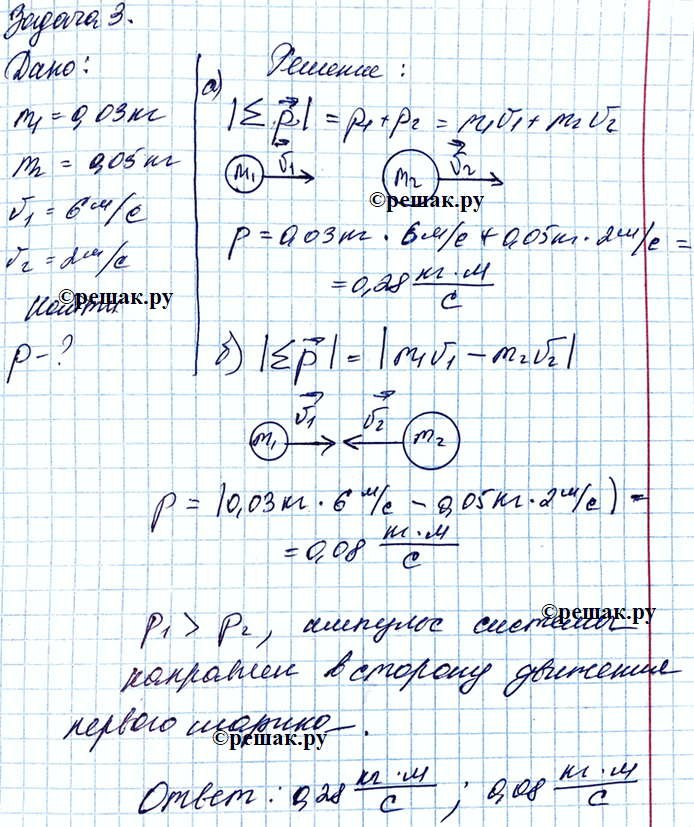 Задача 3.
Дано:
m₁ = 0,03 кг
m₂ = 0,05 кг
v₁ = 6 м/с
v₂ = 2 м/с
Найти
©решак.ру
p - ?
Решение:
а) |Σp⃗| = p₁ + p₂ = m₁v₁ + m₂v₂
m₁ v⃗₁ m₂ v⃗₂
©решак.ру
p = 0,03 кг · 6 м/с + 0,05 кг · 2 м/с =
= 0,28 кг · м / с
б) |Σp⃗| = |m₁v₁ - m₂v₂|
v⃗₁ v⃗₂
m₁ m₂
p = |0,03 кг · 6 м/с - 0,05 кг · 2 м/с| =
= 0,08 кг · м / с
©решак.ру
p₁ > p₂, импульс системы
направлен в сторону движения
первого шарика.
©решак.ру
Ответ: 0,28 кг · м / с ; 0,08 кг · м / с